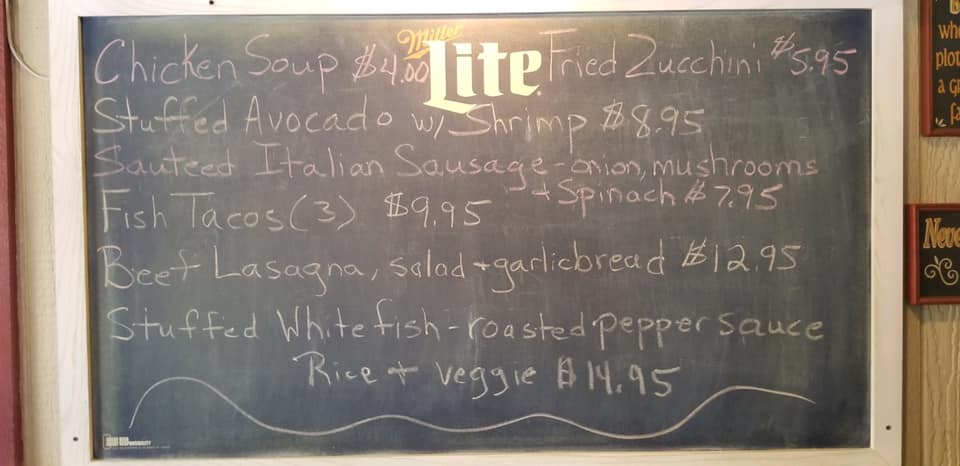 Chicken Soup $4.00 Miller Lite Fried Zucchini $5.95
Stuffed Avocado w/ Shrimp $8.95
Sauteed Italian Sausage - onion, mushrooms
+ Spinach $7.95
Fish Tacos (3) $9.95
Beef Lasagna, salad + garlicbread $12.95
Stuffed Whitefish - roasted pepper sauce
Rice + veggie $14.95
whe
plot
a gr
Neve